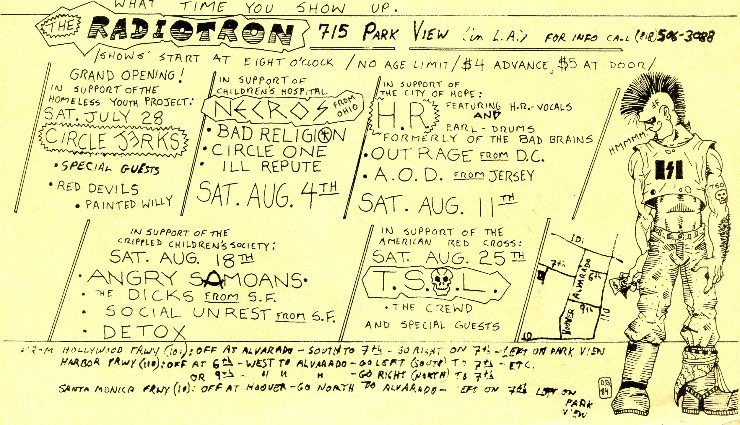 WHAT TIME YOU SHOW UP.
THE RADIOTRON 715 PARK VIEW (in L.A.) FOR INFO CALL (818) 506-3088
/SHOWS START AT EIGHT O'CLOCK / NO AGE LIMIT / $4 ADVANCE, $5 AT DOOR /
GRAND OPENING!
IN SUPPORT OF THE
HOMELESS YOUTH PROJECT:
SAT. JULY 28
CIRCLE JERKS
• SPECIAL GUESTS
• RED DEVILS
• PAINTED WILLY
IN SUPPORT OF
CHILDREN'S HOSPITAL
NECROS FROM OHIO
• BAD RELIGION
• CIRCLE ONE
• ILL REPUTE
SAT. AUG. 4TH
IN SUPPORT OF
THE CITY OF HOPE:
H.R. FEATURING H.R.-VOCALS
AND
EARL-DRUMS
FORMERLY OF THE BAD BRAINS
• OUT RAGE FROM D.C.
• A.O.D. FROM JERSEY
SAT. AUG. 11TH
HMMMMM
TSOL
IN SUPPORT OF THE
CRIPPLED CHILDREN'S SOCIETY:
SAT. AUG. 18TH
• ANGRY SAMOANS •
• THE DICKS FROM S.F.
• SOCIAL UNREST FROM S.F.
• DETOX
IN SUPPORT OF THE
AMERICAN RED CROSS:
SAT. AUG. 25TH
T.S.O.L.
• THE CREWD
AND SPECIAL GUESTS
101
7th
ALVARADO
6th
9th
HOOVER
110
FROM HOLLYWOOD FRWY (101): OFF AT ALVARADO - SOUTH TO 7th - GO RIGHT ON 7th - LEFT ON PARK VIEW
HARBOR FRWY (110): OFF AT 6th - WEST TO ALVARADO - GO LEFT (SOUTH) TO 7th - ETC.
OR 9th - " " " - GO RIGHT (NORTH) TO 7th
SANTA MONICA FRWY (10): OFF AT HOOVER - GO NORTH TO ALVARADO - LEFT ON 7th LEFT ON
PARK
VIEW